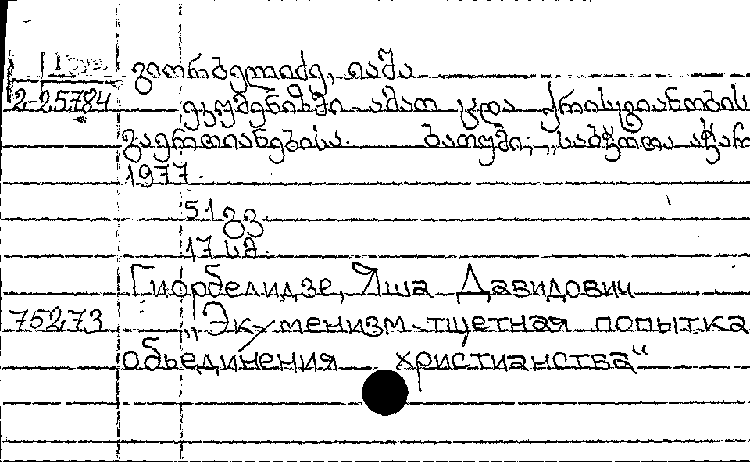 გიორბელიძე, იაშა
2-25784 ეკუმენიზმი ამაო ცდა ქრისტიანობის
გაერთიანებისა. ბათუმი, „საბჭოთა აჭარ
1977.
51 გვ.
17 კაპ.
Гиорбелидзе, Яша Давидович
75273 „Экуменизм тщетная попытка
объединения христианства“